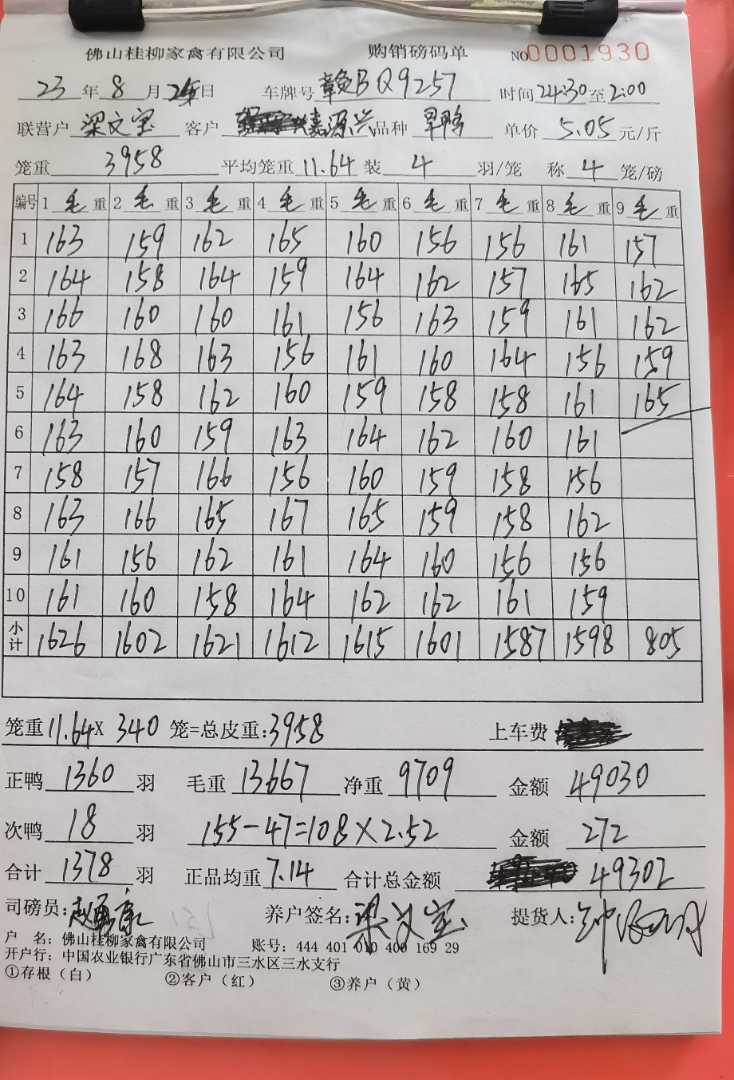 佛山桂柳家禽有限公司 购销磅码单 NO0001930
23年8月25日 车牌号赣BQ9257 时间24:30至2:00
联营户 梁文宝 客户 嘉源兴 品种 旱鸭 单价 5.05元/斤
笼重 3958 平均笼重11.64装 4 羽/笼 称 4 笼/磅
编号 1毛重 2毛重 3毛重 4毛重 5毛重 6毛重 7毛重 8毛重 9毛重
1 163 159 162 165 160 156 156 161 157
2 164 158 164 159 164 162 157 165 162
3 166 160 160 161 156 163 159 161 162
4 163 168 163 156 161 160 164 156 159
5 164 158 162 160 159 158 158 161 165
6 163 160 159 163 164 162 160 161
7 158 157 166 156 160 159 158 156
8 163 166 165 167 165 159 158 162
9 161 156 162 161 164 160 156 156
10 161 160 158 164 162 162 161 159
小计 1626 1602 1621 1612 1615 1601 1587 1598 805
笼重11.64X 340 笼=总皮重:3958 上车费
正鸭 1360 羽 毛重 13667 净重 9709 金额 49030
次鸭 18 羽 155-47=108×2.52 金额 272
合计 1378 羽 正品均重7.14 合计总金额 49302
司磅员: 养户签名:梁文宝 提货人:
户 名:佛山桂柳家禽有限公司 账号:444 401 010 400 169 29
开户行:中国农业银行广东省佛山市三水区三水支行
①存根(白) ②客户(红) ③养户(黄)